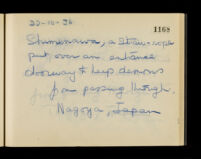 22-10-36
1168
Shimenawa, a straw-rope
put over an entrance
doorway to keep demons
from passing through.
Nagoya, Japan